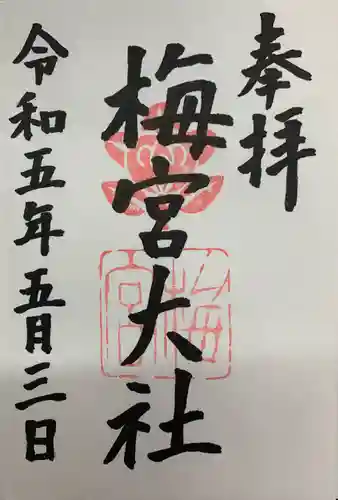 奉拝
梅宮大社
令和五年五月三日
梅宮